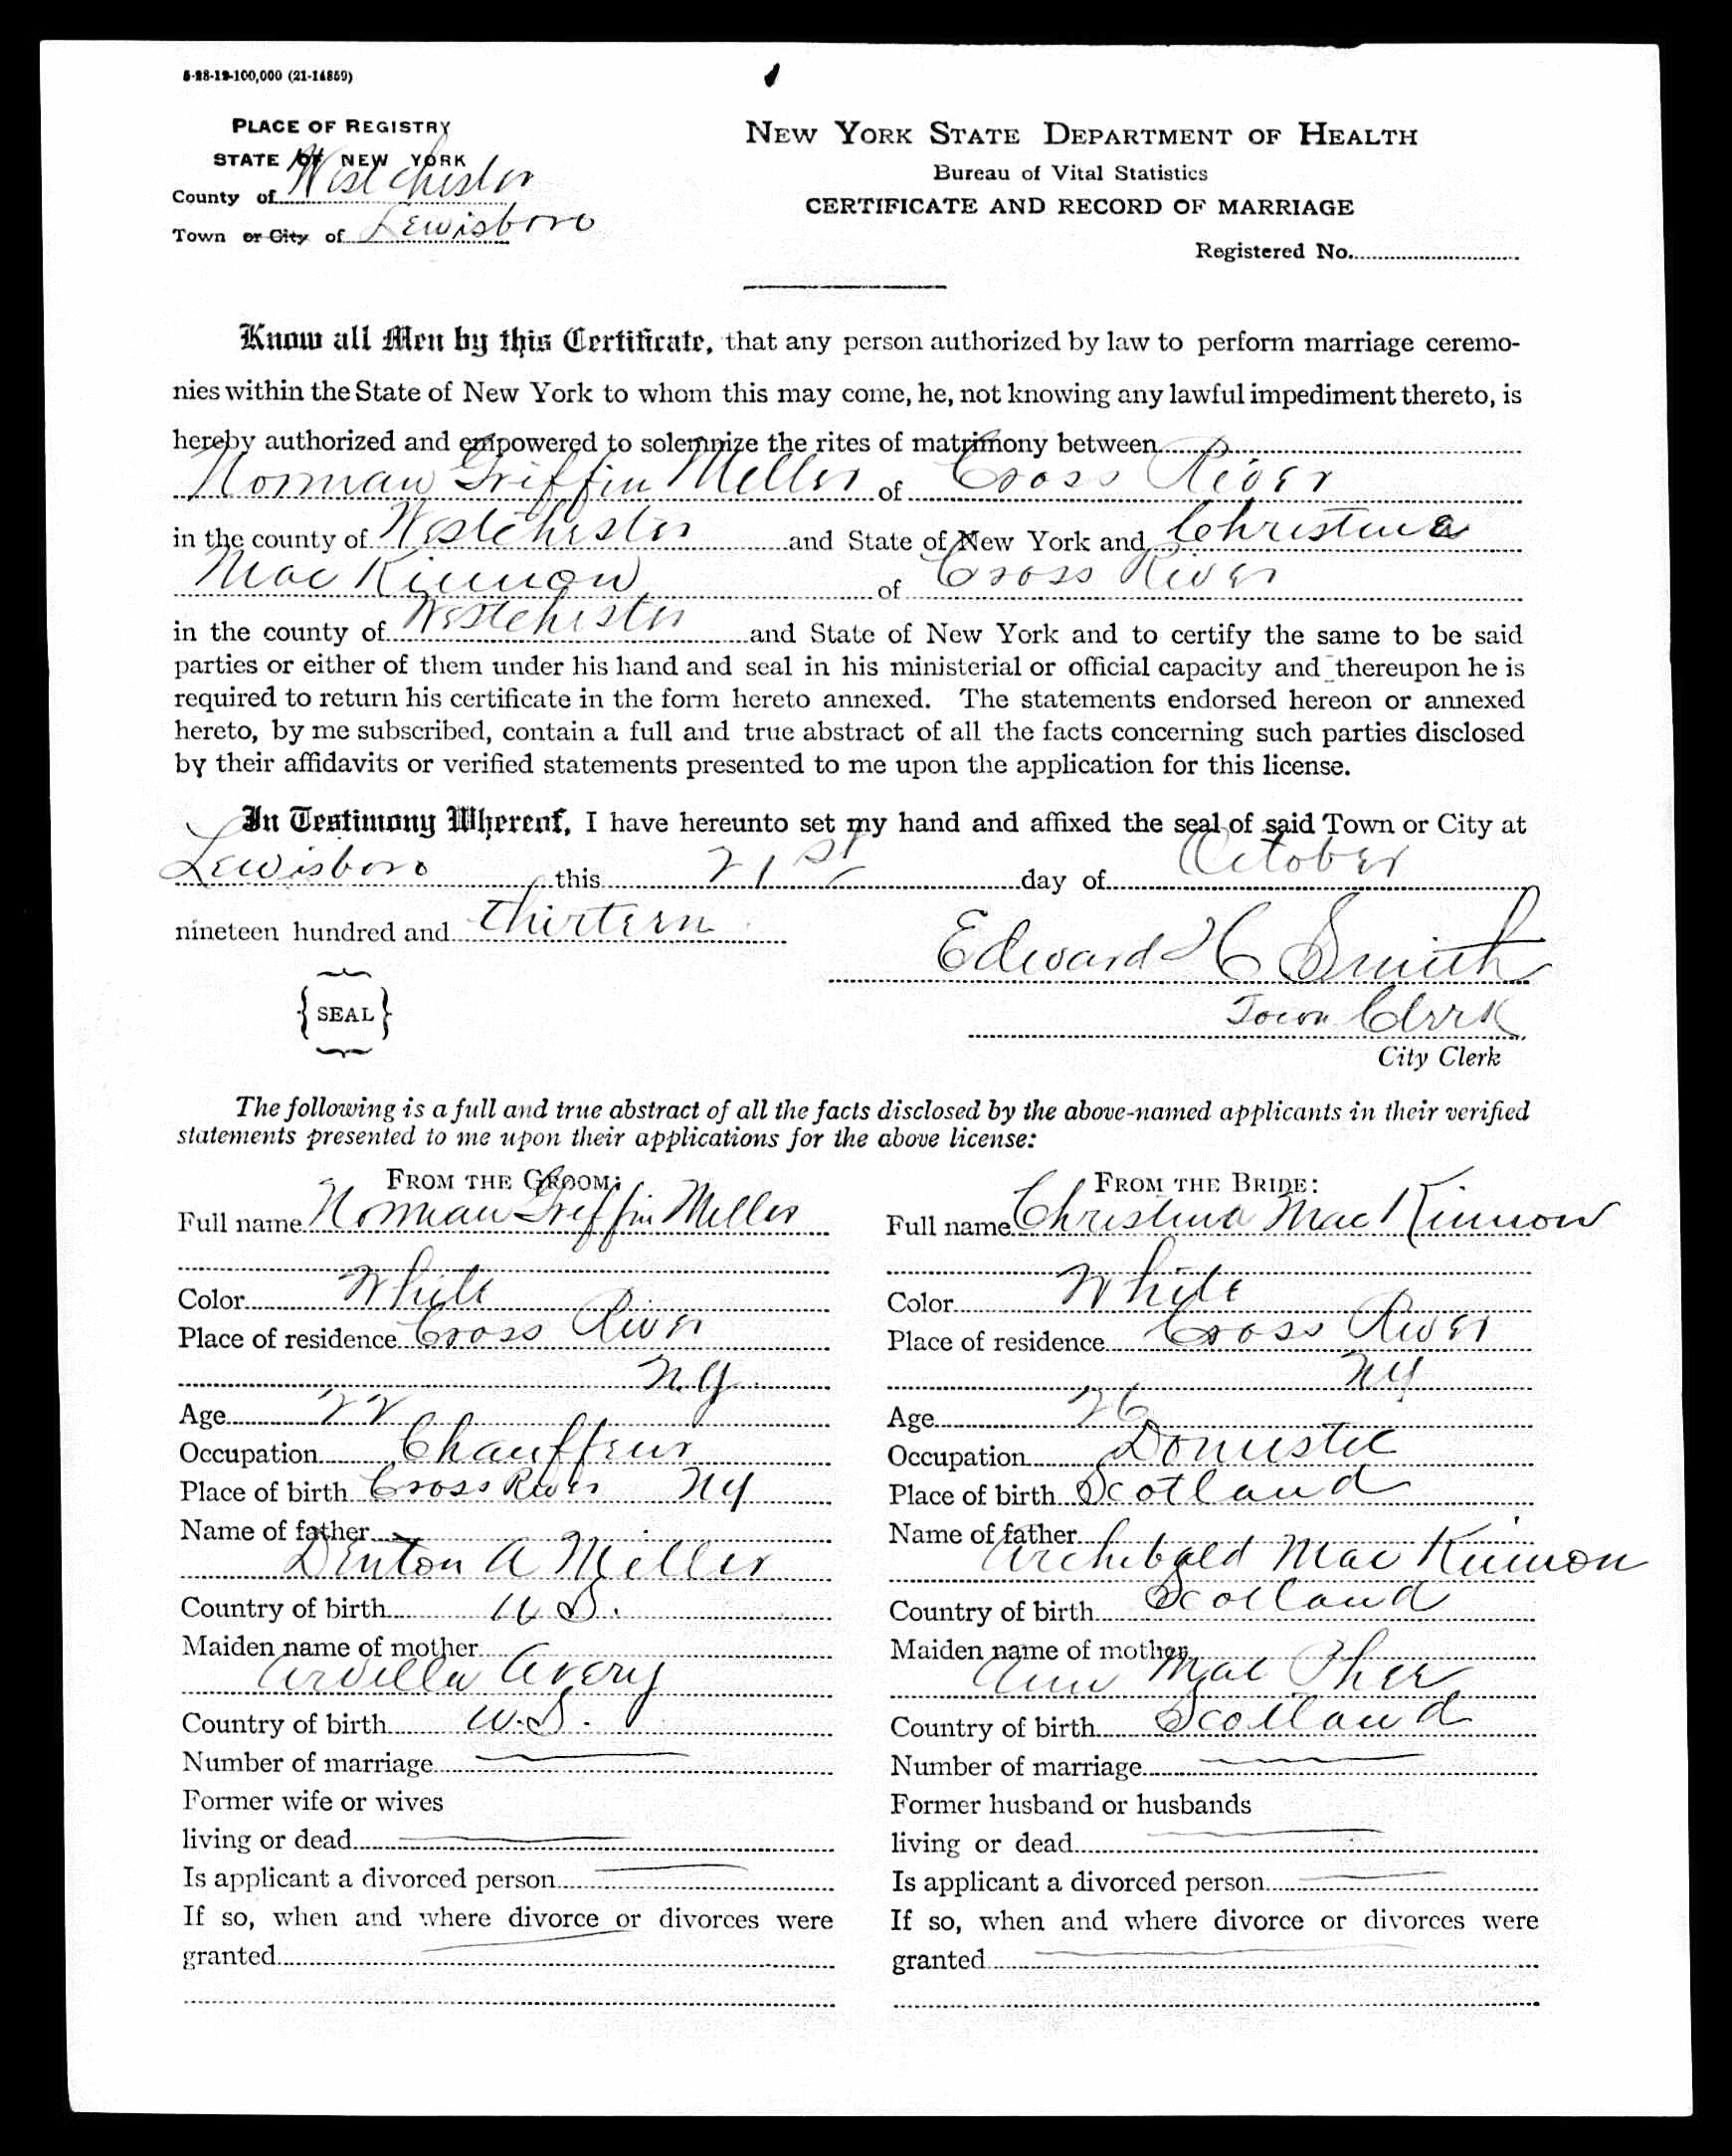 5-28-13-100,000 (21-14859)
PLACE OF REGISTRY
STATE OF NEW YORK
County of Westchester
Town or City of Lewisboro
NEW YORK STATE DEPARTMENT OF HEALTH
Bureau of Vital Statistics
CERTIFICATE AND RECORD OF MARRIAGE
Registered No.
Know all Men by this Certificate, that any person authorized by law to perform marriage ceremo-
nies within the State of New York to whom this may come, he, not knowing any lawful impediment thereto, is
hereby authorized and empowered to solemnize the rites of matrimony between
Norman Griffin Miller of Cross River
in the county of Westchester and State of New York and Christina
Mac Kinnon of Cross River
in the county of Westchester and State of New York and to certify the same to be said
parties or either of them under his hand and seal in his ministerial or official capacity and thereupon he is
required to return his certificate in the form hereto annexed. The statements endorsed hereon or annexed
hereto, by me subscribed, contain a full and true abstract of all the facts concerning such parties disclosed
by their affidavits or verified statements presented to me upon the application for this license.
In Testimony Whereof, I have hereunto set my hand and affixed the seal of said Town or City at
Lewisboro this 21st day of October
nineteen hundred and thirteen
Edward H Smith
SEAL
Town Clerk
City Clerk
The following is a full and true abstract of all the facts disclosed by the above-named applicants in their verified
statements presented to me upon their applications for the above license:
FROM THE GROOM:
Full name Norman Griffin Miller
Color White
Place of residence Cross River
N.Y.
Age 22
Occupation Chauffeur
Place of birth Cross River NY
Name of father
Denton A Miller
Country of birth U.S.
Maiden name of mother
Arvilla Avery
Country of birth U.S.
Number of marriage
Former wife or wives
living or dead
Is applicant a divorced person
If so, when and where divorce or divorces were
granted
FROM THE BRIDE:
Full name Christina Mac Kinnon
Color White
Place of residence Cross River
NY
Age 26
Occupation Domestic
Place of birth Scotland
Name of father
Archibald Mac Kinnon
Country of birth Scotland
Maiden name of mother
Ann Mac Pher
Country of birth Scotland
Number of marriage
Former husband or husbands
living or dead
Is applicant a divorced person
If so, when and where divorce or divorces were
granted